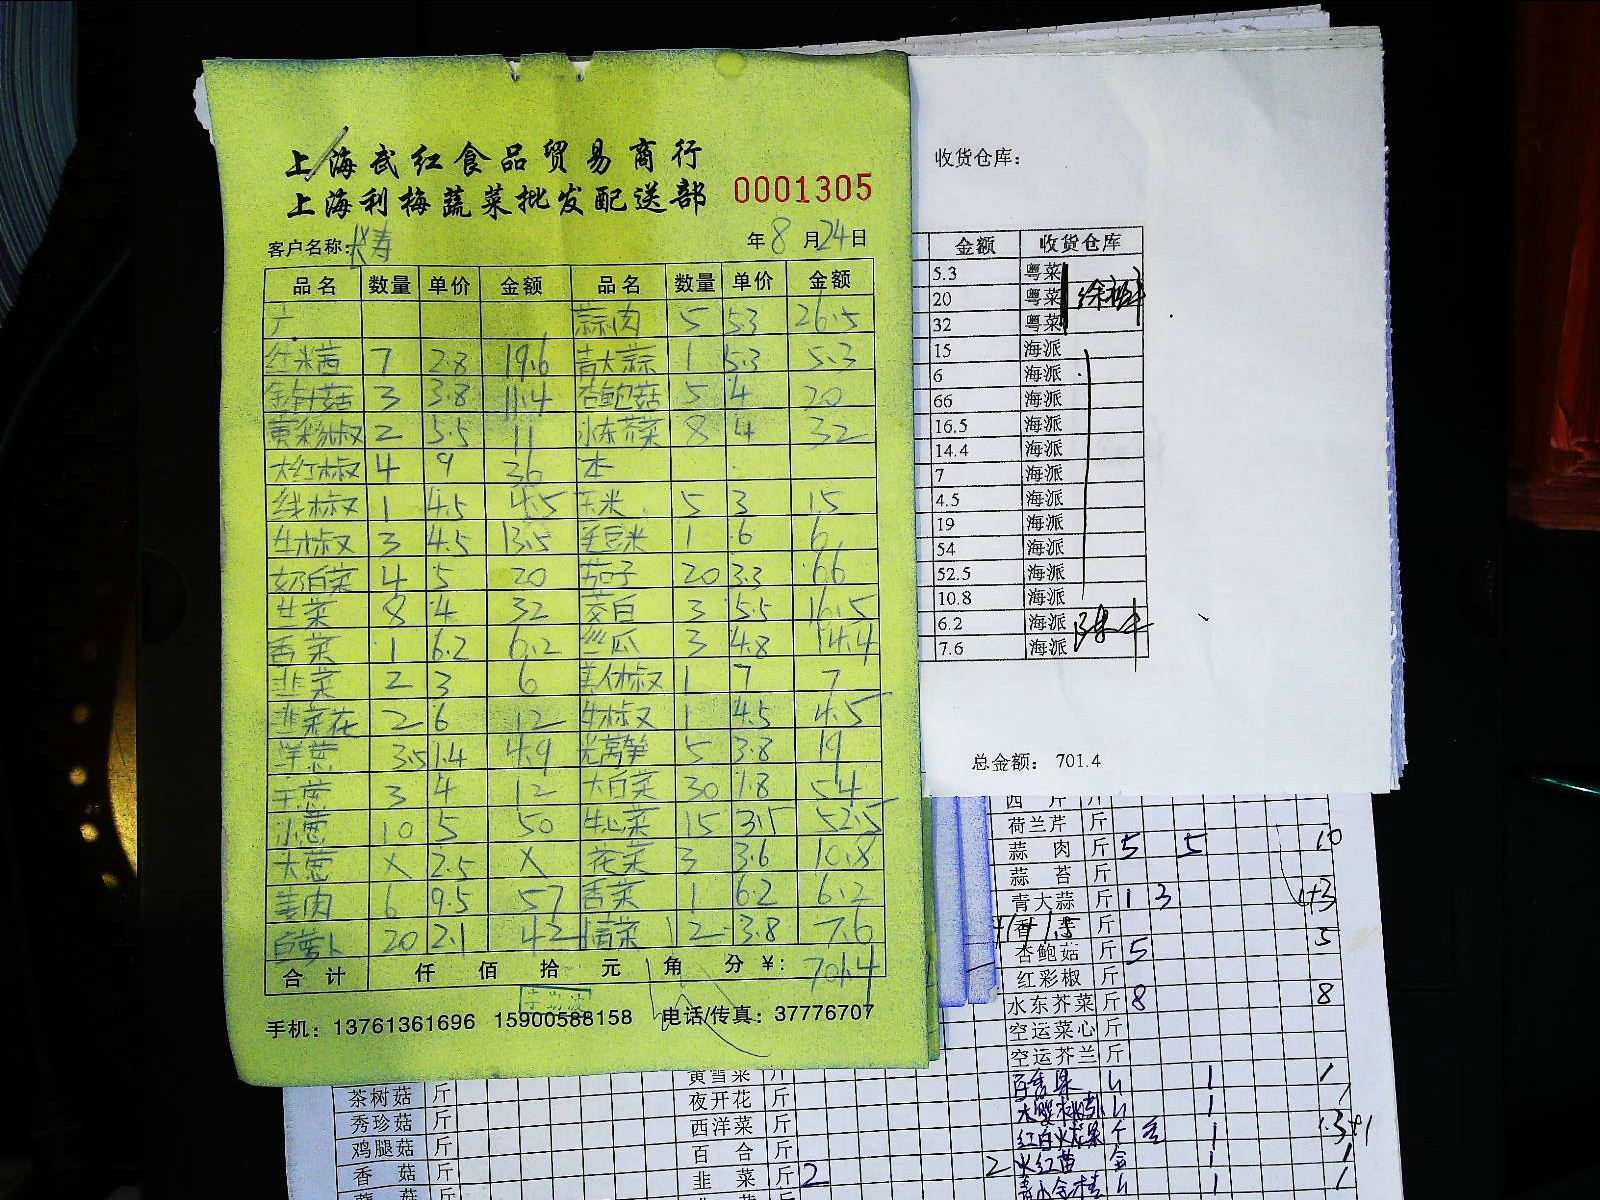 上海武红食品贸易商行
上海利梅蔬菜批发配送部 0001305
客户名称：长寿 年8月24日
品名 数量 单价 金额 品名 数量 单价 金额
广 蒜肉 5 5.3 26.5
红米苋 7 2.8 19.6 青大蒜 1 5.3 5.3
金针菇 3 3.8 11.4 杏鲍菇 5 4 20
黄彩椒 2 5.5 11 水东芥菜 8 4 32
大红椒 4 9 36 本
线椒 1 4.5 4.5 玉米 5 3 15
牛椒 3 4.5 13.5 毛豆米 1 6 6
奶白菜 4 5 20 茄子 20 3.3 66
生菜 8 4 32 茭白 3 5.5 16.5
香菜 1 6.2 6.2 丝瓜 3 4.8 14.4
韭菜 2 3 6 美人椒 1 7 7
韭菜花 2 6 12 牛椒 1 4.5 4.5
洋葱 3.5 1.4 4.9 光莴笋 5 3.8 19
干葱 3 4 12 大白菜 30 1.8 54
小葱 10 5 50 牛心菜 15 3.5 52.5
大葱 X 2.5 X 花菜 3 3.6 10.8
姜肉 6 9.5 57 香菜 1 6.2 6.2
白萝卜 20 2.1 42 2 3.8 7.6
合计 仟 佰 拾 元 角 分 ¥: 701.4
手机：13761361696 15900588158 电话/传真：37776707
收货仓库：
金额 收货仓库
5.3 粤菜
20 粤菜
32 粤菜
15 海派
6 海派
66 海派
16.5 海派
14.4 海派
7 海派
4.5 海派
19 海派
54 海派
52.5 海派
10.8 海派
6.2 海派
7.6 海派
总金额： 701.4
西芹 斤
荷兰芹 斤
蒜肉 斤 5 5 10
蒜苔 斤
青大蒜 斤 1 3 1+3
斤
杏鲍菇 斤 5 5
红彩椒 斤
水东芥菜 斤 8 8
空运菜心 斤
空运芥兰 斤
茶树菇 斤
秀珍菇 斤
鸡腿菇 斤
香菇 斤
黄雪菜 斤
夜开花 斤
西洋菜 斤
百合 斤
韭菜 斤 2